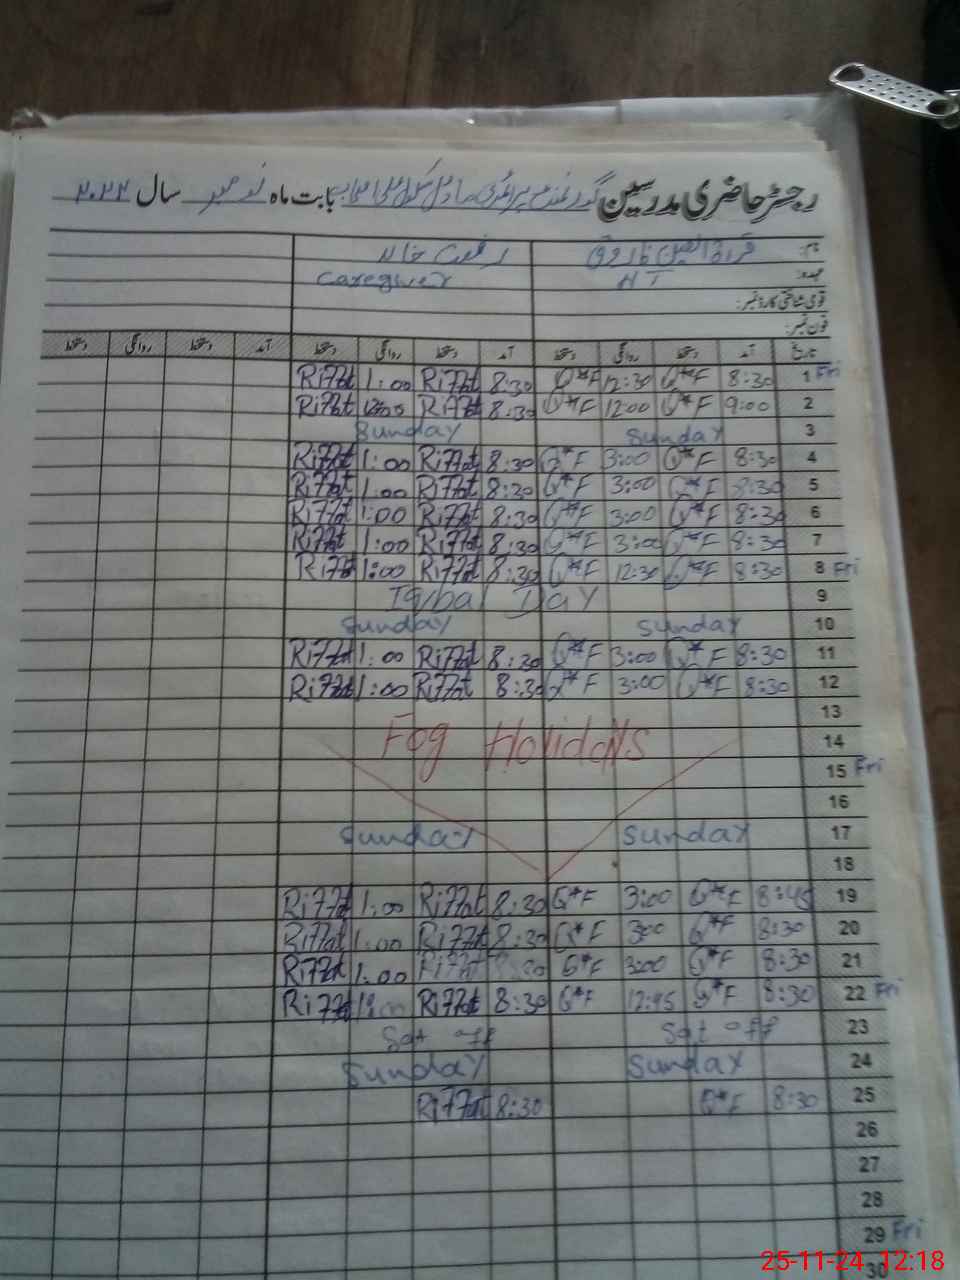 رجسٹر حاضری مدرسین گورنمنٹ پرائمری ماڈل سکول بابت ماہ نومبر سال ۲۰۲۴
نام: قرۃ العین فاروق رفعت خانم
عہدہ HT Caregiver
قومی شناختی کارڈ نمبر:
فون نمبر:
تاریخ آمد دستخط روانگی دستخط آمد دستخط روانگی دستخط آمد دستخط روانگی دستخط
1 Fri 8:30 Q*F 12:30 Q*F 8:30 Riffat 1:00 Riffat
2 9:00 Q*F 12:00 Q*F 8:30 Riffat Riffat
3 Sunday Sunday
4 8:30 Q*F 3:00 Q*F 8:30 Riffat 1:00 Riffat
5 8:30 Q*F 3:00 Q*F 8:30 Riffat 1:00 Riffat
6 8:30 Q*F 3:00 Q*F 8:30 Riffat 1:00 Riffat
7 8:30 Q*F 3:00 Q*F 8:30 Riffat 1:00 Riffat
8 Fri 8:30 Q*F 12:30 Q*F 8:30 Riffat 1:00 Riffat
9 Iqbal Day
10 Sunday Sunday
11 8:30 Q*F 3:00 Q*F 8:30 Riffat 1:00 Riffat
12 8:30 Q*F 3:00 Q*F 8:30 Riffat 1:00 Riffat
13
14 Fog Holidays
15 Fri
16
17 Sunday Sunday
18
19 8:45 Q*F 3:00 Q*F 8:30 Riffat 1:00 Riffat
20 8:30 Q*F 300 Q*F 8:30 Riffat 1:00 Riffat
21 8:30 Q*F 3:00 Q*F Riffat 1:00 Riffat
22 Fri 8:30 Q*F 12:45 Q*F 8:30 Riffat Riffat
23 Sat off Sat off
24 Sunday Sunday
25 8:30 Q*F 8:30 Riffat
26
27
28
29 Fri
30
25-11-24 12:18